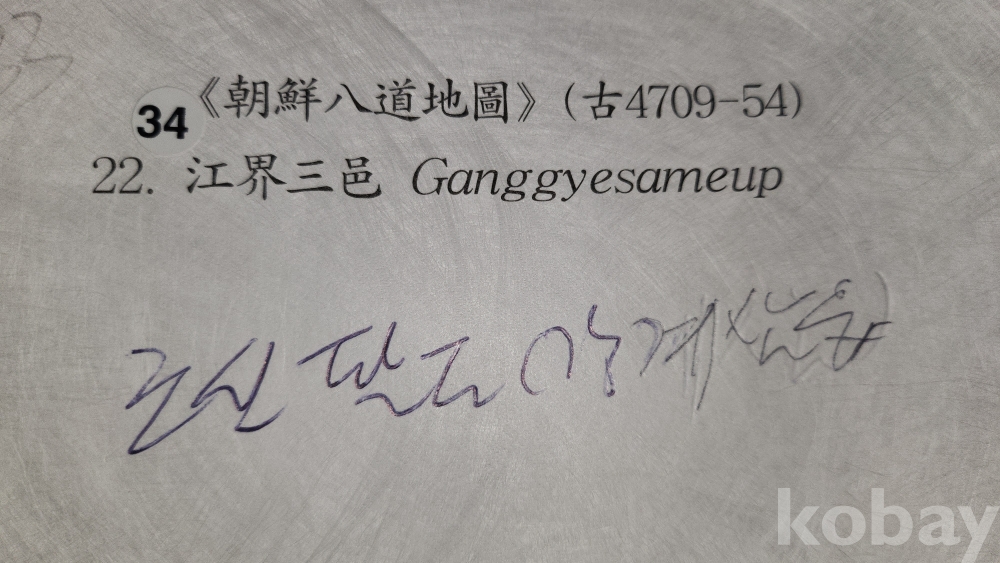 34 《朝鮮八道地圖》(古4709-54)
22. 江界三邑 Ganggyesameup
조선 팔도 (강계삼읍)
kobay